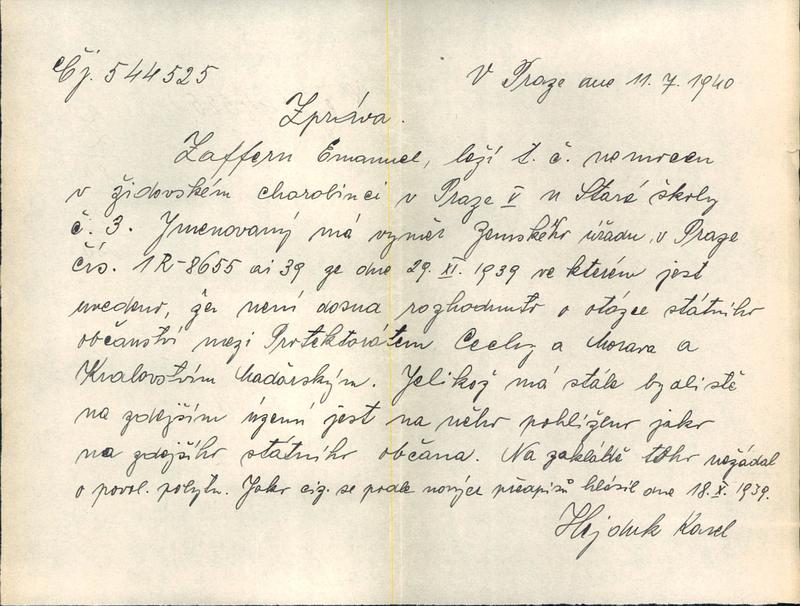 Čj. 544525
V Praze dne 11.7.1940
Zpráva.
Zaffern Emanuel, leží t. č. nemocen
v židovském chorobinci v Praze V u Staré školy
č. 3. Jmenovaný má výměr Zemského úřadu v Praze
čís. 1R-8655 ai 39 ze dne 29. XI. 1939 ve kterém jest
uvedeno, že není dosud rozhodnuto o otázce státního
občanství mezi Protektorátem Čechy a Morava a
Královstvím Maďarským. Jelikož má stálé bydliště
na zdejším území jest na něho pohlíženo jako
na zdejšího státního občana. Na základě toho nežádal
o povol. pobytu. Jako ciz. se podle nových předpisů hlásil dne 18.X.1939.
Hejduk Karel